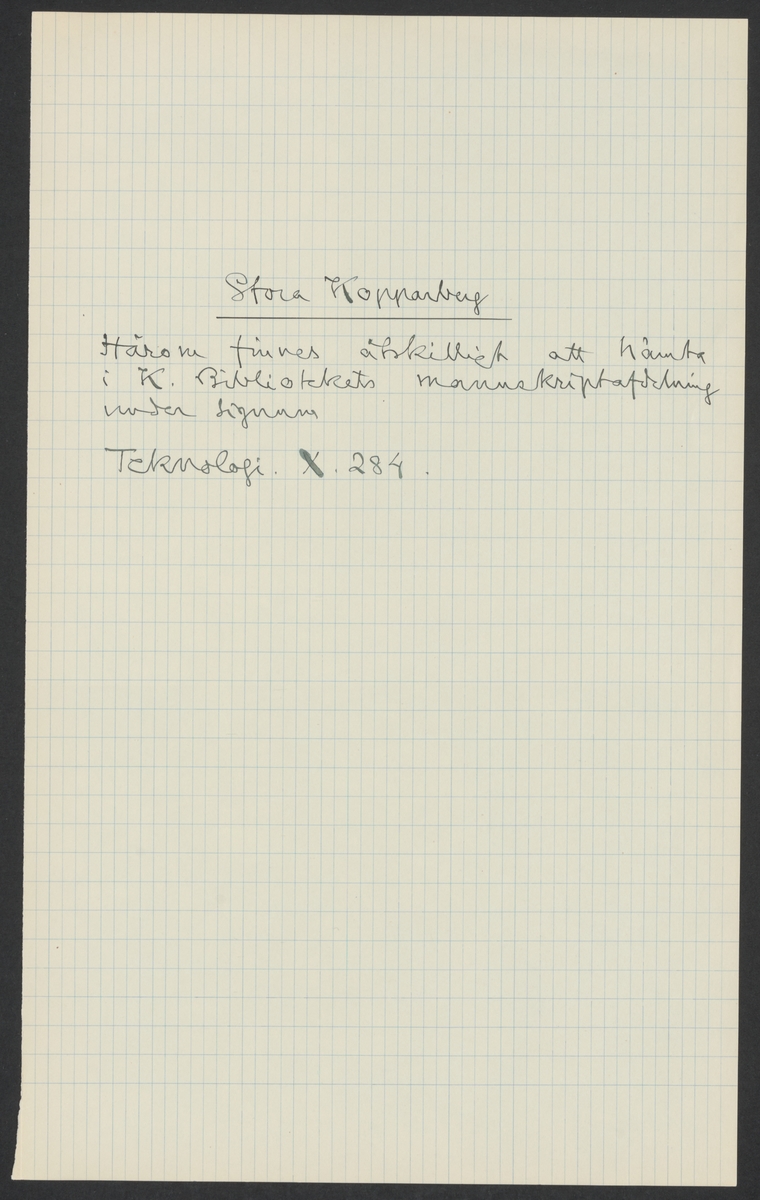 Stora Kopparberg
Härom finnes åtskilligt att hämta
i K. Bibliotekets manuskriptafdelning
under signum
Teknologi. X. 284.